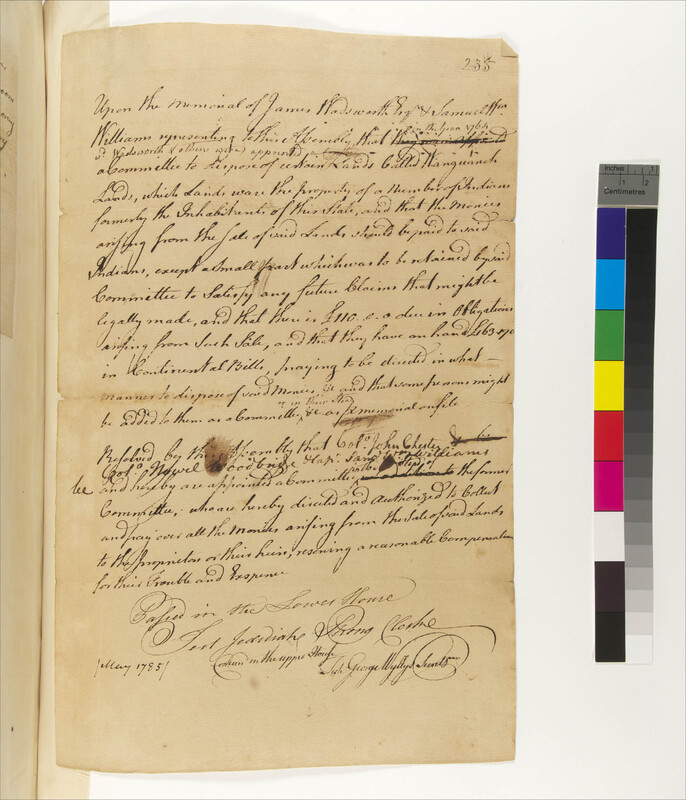 235
Upon the memorial of James Wadsworth Esqr & Samuel Wm
Williams representing to this Assembly, that
in the Year 1764
sd Wadsworth & others were appointed a
a Committee to dispose of certain Lands Called Wangunck
Lands, which Lands ware the property of a Number of Indians
formerly the Inhabitants of this State, and that the Monies
arising from the Sale of said Lands should be paid to said
Indians, except a small part which was to be retained by said
Committee to Satisfy any future Claims that might be
legally made, and that there is £110.0.0 due in Obligations
arising from Such Sale, and that they have on hand £163
in Continental Bills, praying to be directed in what
manner to dispose of said Monies, &c and that some persons might
or in their Stead
be added to them as a Committee, &c. as memorial on file
Resolved by this Assembly that Colo John Chester
Colo Howel Woodbrige & Capt Saml Wm Williams
be and hereby are appointed a Committee to the former
in the Sted of
Committee, who are hereby directed and Authorized to Collect
and pay over all the Monies arising from the Sale of said Lands
to the Proprietors or their heirs, reserving a reasonable Compensation
for their Trouble and Expence
Passed in the Lower House
Test Jedidiah Strong Clerke
Concurd in the upper House
/May 1785/
Test. George Wyllys Secretr
Inches
1 2
Centimetres